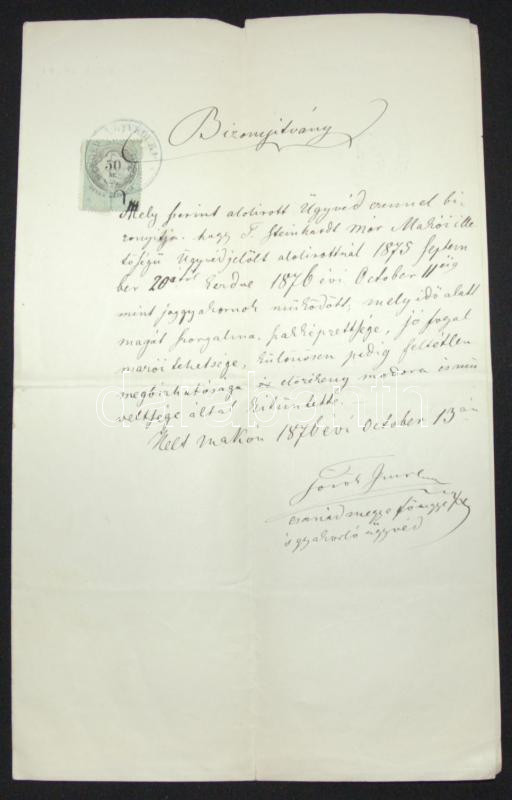 Bizonyitvány
50
Mely szerint alolirott Ügyvéd ezennel bi
zonyitja, hogy T. Steinhardt Mór Makói ille
tőségü Ügyvédjelölt alolirottnál 1875 Septem
ber 20ától kezdve 1876 évi October 11éig
mint joggyakornok működött, mely idő alatt
magát szorgalma, szakképzettsége, jó fogal
mazói tehetsége, különösen pedig feltétlen
megbizhatósága és előzékeny modora és mü
veltsége által kitüntette.
Kelt Makón 1876 évi October 13án
Török Imre
csanádmegye főügyésze
és gyakorló ügyvéd
darabanth